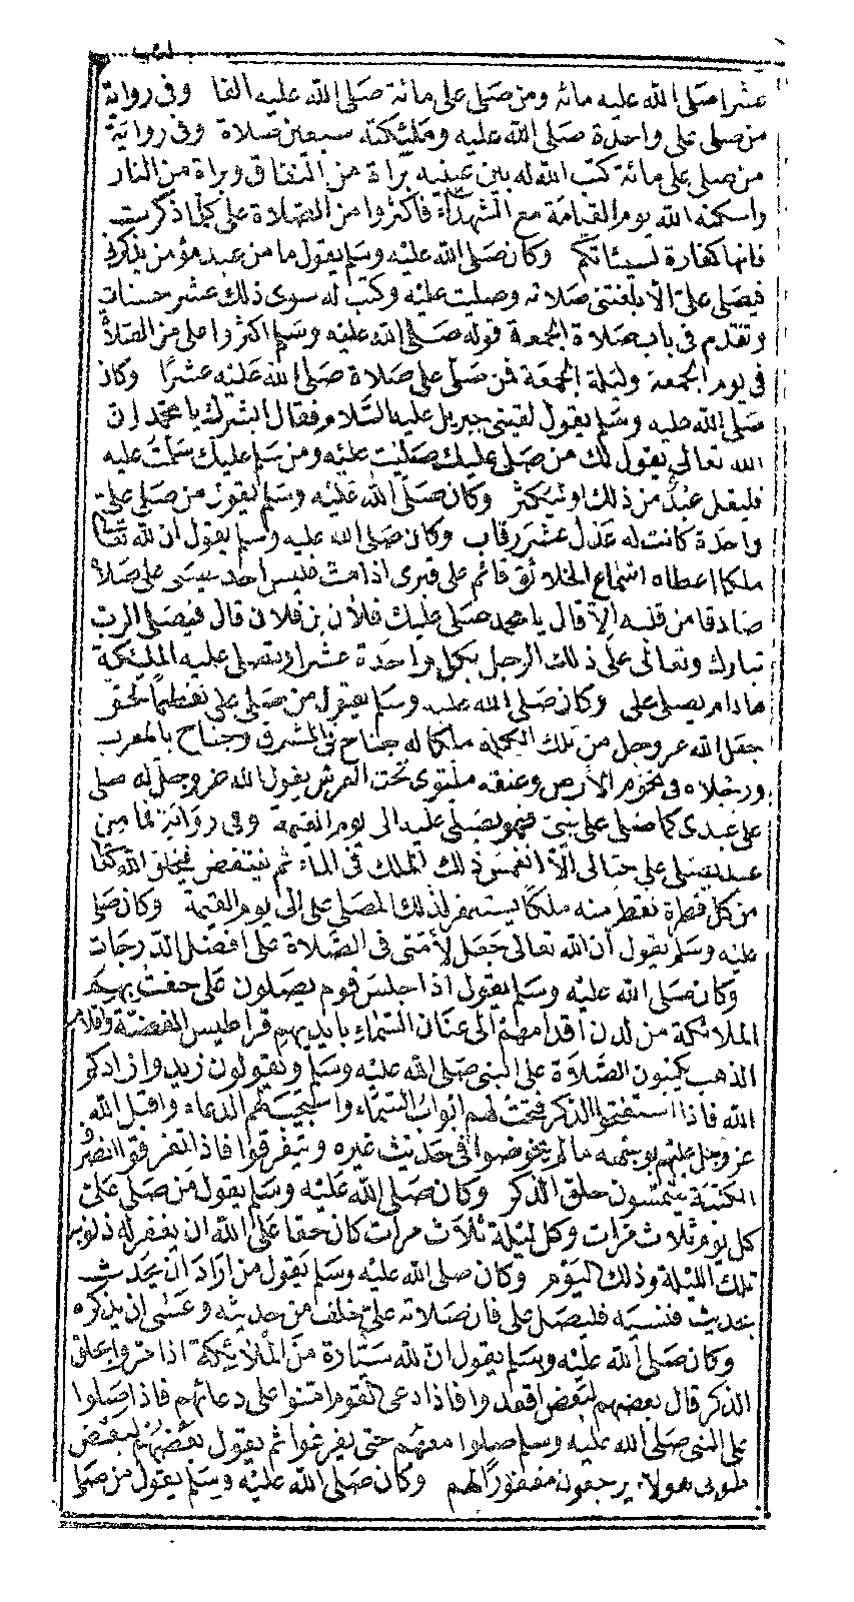 عشرا صلى الله عليه مائة ومن صلى على مائة صلى الله عليه الفا وفى رواية
من صلى على واحدة صلى الله عليه وملئكته سبعين صلاة وفى رواية
من صلى على مائة كتب الله له بين عينيه براة من النفاق وبراة من النار
واسكنه الله يوم القيامة مع الشهداء فاكثروا من الصلاة على كلما ذكرت
فانها كفارة لسيئاتكم وكان صلى الله عليه وسلم يقول ما من عبد مؤمن يذكرنى
فيصلى على الا بلغتنى صلاته وصليت عليه وكتب له سوى ذلك عشر حسنات
وتقدم فى باب صلاة الجمعة قوله صلى الله عليه وسلم اكثروا على من الصلاة
فى يوم الجمعة وليلة الجمعة فمن صلى على صلاة صلى الله عليه عشرا وكان
صلى الله عليه وسلم يقول لقينى جبريل عليه السلام فقال ابشرك يا محمد ان
الله تعالى يقول لك من صلى عليك صليت عليه ومن سلم عليك سلمت عليه
فليقل عبد من ذلك او ليكثر وكان صلى الله عليه وسلم يقول من صلى على
واحدة كانت له عدل عشر رقاب وكان صلى الله عليه وسلم يقول ان لله تعالى
ملكا اعطاه اسماع الخلائق قائم على قبرى اذا مت فليس احد يصلى على صلاة
صادقا من قلبه الا قال يا محمد صلى عليك فلان بن فلان قال فيصلى الرب
تبارك وتعالى على ذلك الرجل بكل واحدة عشرا وتصلى عليه الملئكة
مادام يصلى على وكان صلى الله عليه وسلم يقول من صلى على تعظيما لحقى
جعل الله عز وجل من تلك الكلمة ملكا له جناح فى المشرق وجناح بالمغرب
ورجلاه فى تخوم الارض وعنقه ملتوى تحت العرش يقول الله عز وجل له صلى
على عبدى كما صلى على نبيى فهو يصلى عليه الى يوم القيمة وفى رواية فما من
عبد يصلى على الا انغمس ذلك الملك فى الماء ثم ينتفض فيخلق الله تعالى
من كل قطرة تقطر منه ملكا يستغفر لذلك المصلى على الى يوم القيمة وكان صلى
عليه وسلم يقول ان الله تعالى جعل لامتى فى الصلاة على افضل الدرجات
وكان صلى الله عليه وسلم يقول اذا جلس قوم يصلون على حفت بهم
الملائكة من لدن اقدامهم الى عنان السماء بايديهم قراطيس الفضة واقلام
الذهب يكتبون الصلاة على النبى صلى الله عليه وسلم ويقولون زيدوا زادكم
الله فاذا استفتحوا الذكر فتحت لهم ابواب السماء واستجيب لهم الدعاء واقبل الله
عز وجل عليهم بوجهه ما لم يخوضوا فى حديث غيره ويتفرقوا فاذا تفرقوا انصرف
الكتبة يلتمسون حلق الذكر وكان صلى الله عليه وسلم يقول من صلى على
كل يوم ثلاث مرات وكل ليلة ثلاث مرات كان حقا على الله ان يغفر له ذنوب
تلك الليلة وذلك اليوم وكان صلى الله عليه وسلم يقول من اراد ان يحدث
بحديث فنسيه فليصل على فان صلاته على خلف من حديثه وعسى ان يذكره
وكان صلى الله عليه وسلم يقول ان لله سيارة من الملائكة اذا مروا بحلق
الذكر قال بعضهم لبعض اقعدوا فاذا دعى القوم امنوا على دعائهم فاذا صلوا
على النبى صلى الله عليه وسلم صلوا معهم حتى يفرغوا ثم يقول بعضهم لبعض
طوبى لهولاء يرجعون مغفورا لهم وكان صلى الله عليه وسلم يقول من صلى